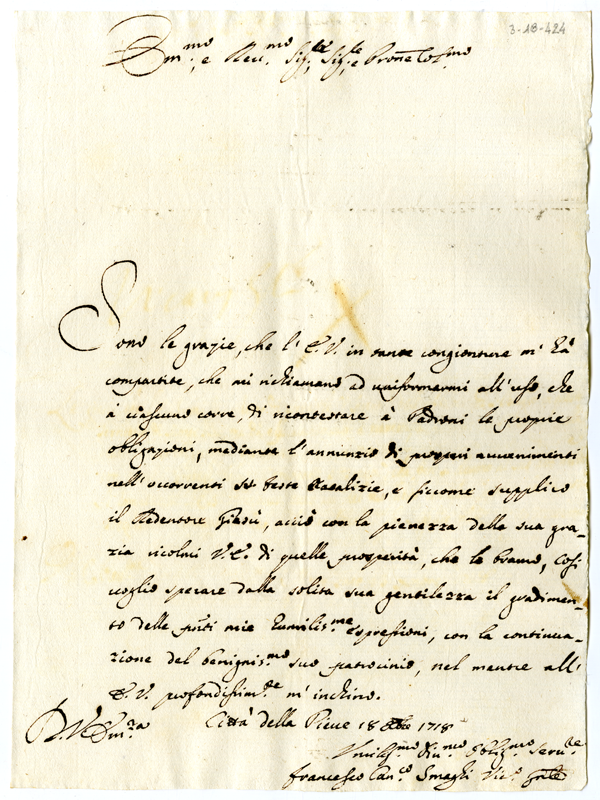 3-18-424
Em.mo e Reu.mo Sig.re Sig.re e Prone Col.mo
Sono le grazie, che l'E.V. in tante congionture m'hà
compartite, che mi richiamano ad uniformarmi all'uso, che
à ciascuno corre, di ricontestare à Padroni le proprie
obligazioni, mediante l'annunzio di prosperi auuenimenti
nell'occorrenti S.te feste Natalizie, e siccome supplico
il Redentore Giesù, acciò con la pienezza della sua gra-
zia ricolmi V.E. di quelle prosperità, che le bramo, Così
voglio sperare dalla solita sua gentilezza il gradimen-
to delle pnti mie humilis.me espressioni, con la continua-
zione del benignis.mo suo patrocinio, nel mentre all'
E.V. profondissim.te m'inchino.
D. V. Em.za
Città della Pieve 18 Xbre 1718
Umiliss.mo Diu.mo Oblig.mo Seru.re
Francesco Can.co Smaghi Vic.o Gnle